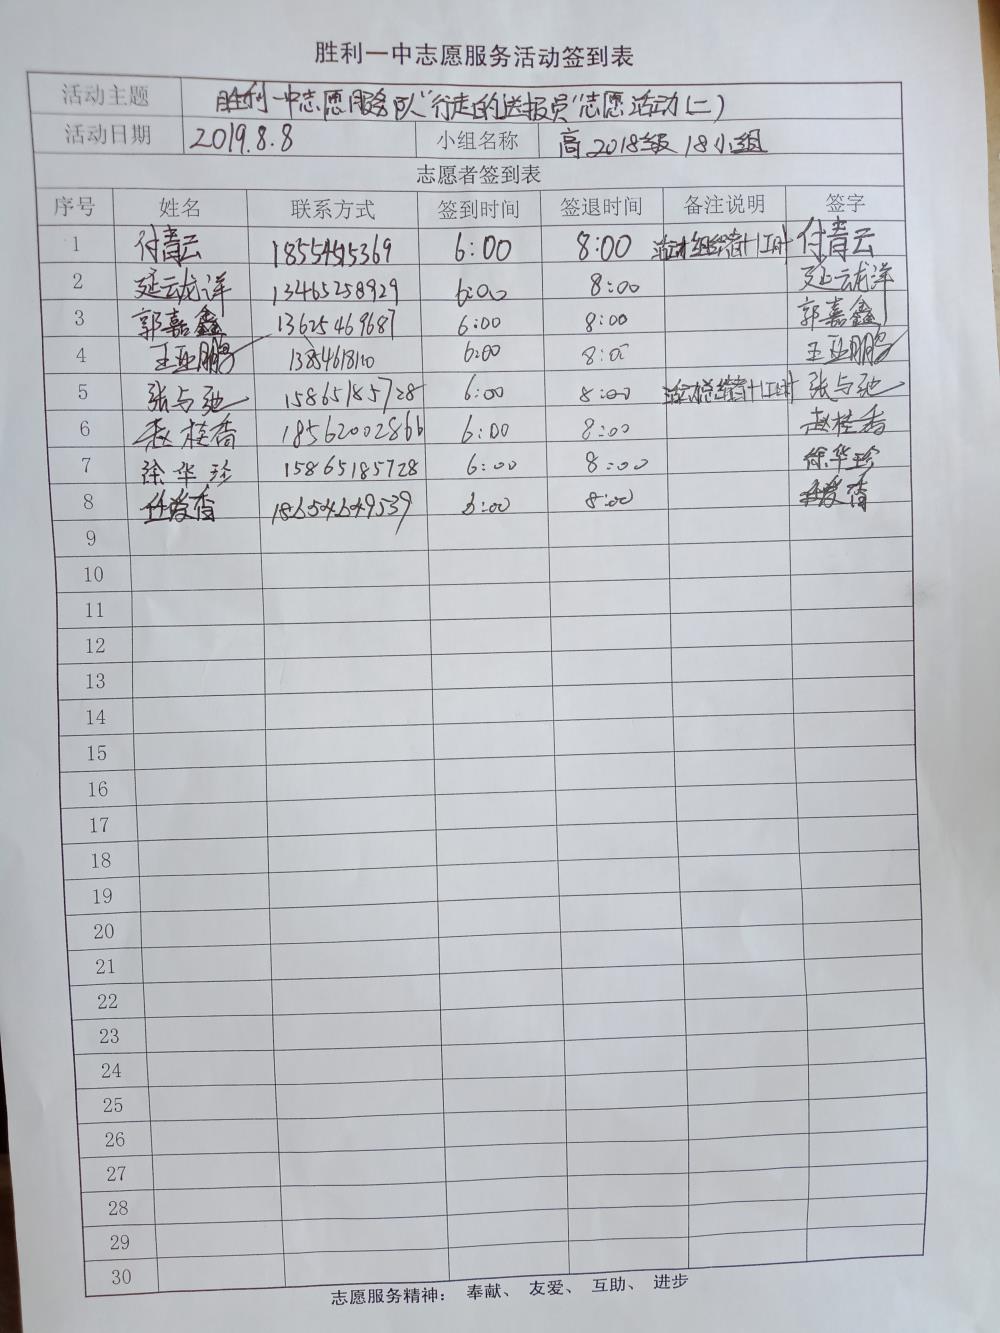 胜利一中志愿服务活动签到表
活动主题 胜利一中志愿服务队“行走的送报员”志愿活动(二)
活动日期 2019.8.8 小组名称 高2018级18小组
志愿者签到表
序号 姓名 联系方式 签到时间 签退时间 备注说明 签字
1 付青云 18554515369 6:00 8:00 付青云
2 延云龙洋 13465258929 6:00 8:00 延云龙洋
3 郭嘉鑫 13625469687 6:00 8:00 郭嘉鑫
4 王亚鹏 6:00 8:00 王亚鹏
5 张与弛 15865185728 6:00 8:00 张与弛
6 赵桂香 18562002866 6:00 8:00 赵桂香
7 徐华珍 15865185728 6:00 8:00 徐华珍
8 任爱香 18654649539 6:00 8:00 任爱香
9
10
11
12
13
14
15
16
17
18
19
20
21
22
23
24
25
26
27
28
29
30
志愿服务精神： 奉献、 友爱、 互助、 进步